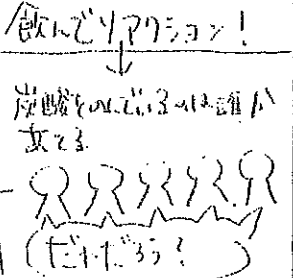 飲んでリアクション!
↓
炭酸をのんでいるのは誰か
当てる
(だれだろう?)